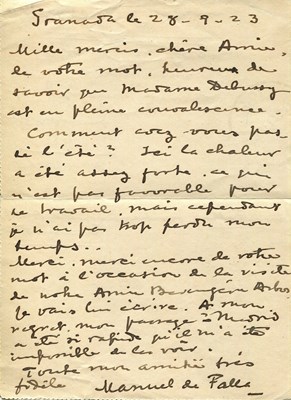 Granada le 28-9-23
Mille mercis, chère Amie,
de votre mot, heureux de
savoir que Madame Debussy
est en pleine convalescence.
Comment avez vous pas-
sé l'été? Ici la chaleur
a été assez forte, ce qui
n'est pas favorable pour
le travail, mais cependant
je n'ai pas trop perdu mon
temps..
Merci, merci encore de votre
mot à l'occasion de la visite
de notre Amie Arbos.
Je vais lui écrire. A mon
regret, mon passage à Madrid
a été si rapide qu'il m'a été
impossible de les voir.
Toute mon amitié très
fidèle Manuel de Falla